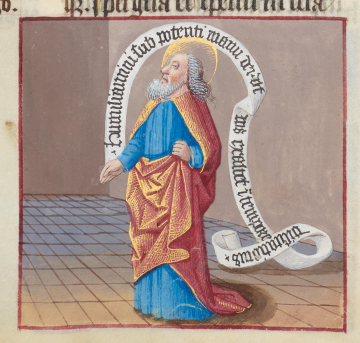 humiliamini sub potenti manu dei ut
uos exaltet i tempore
uisitationis